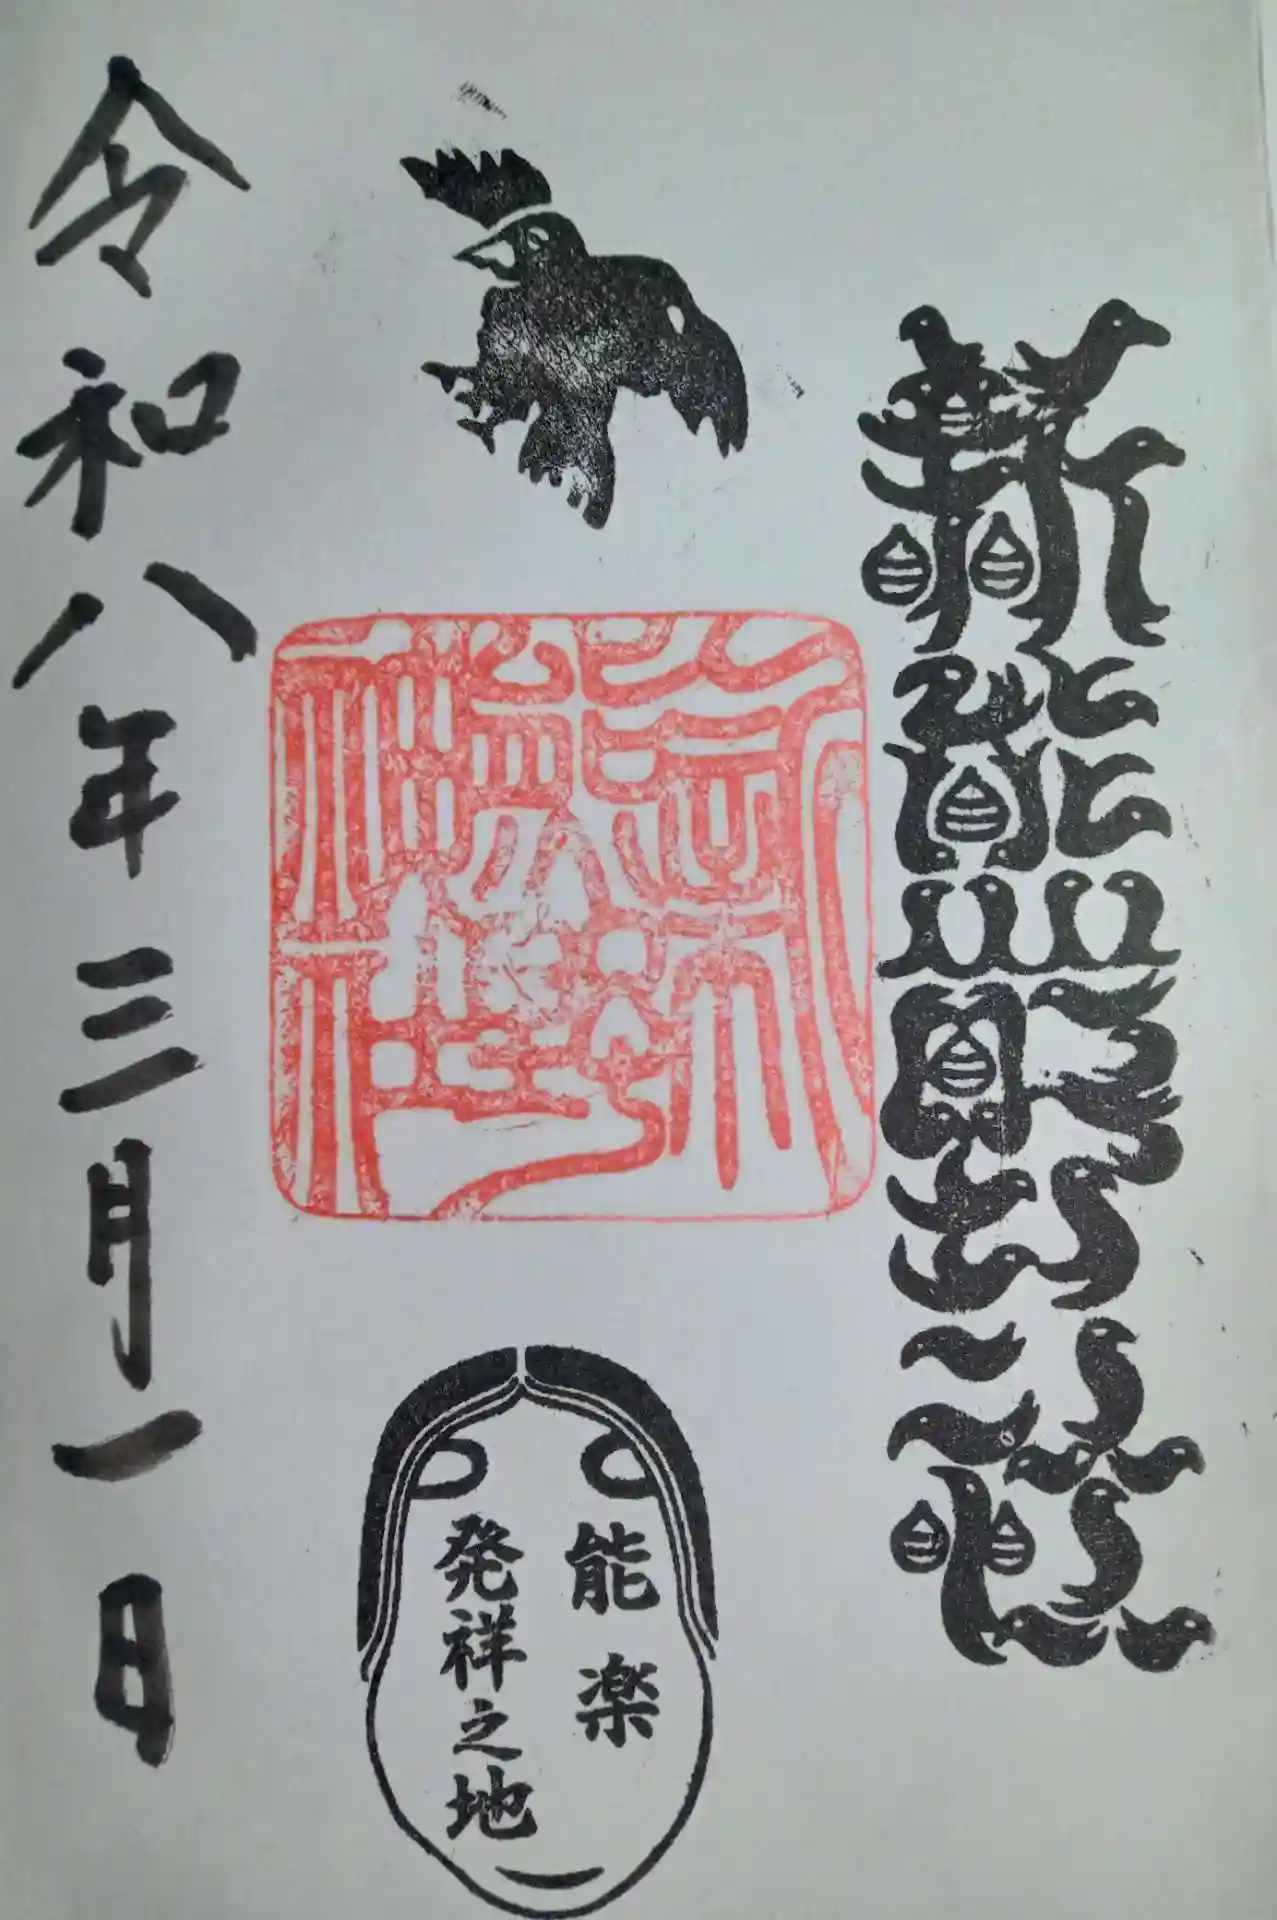 新熊野社
新熊野神社
能楽
発祥之地
令和八年三月一日